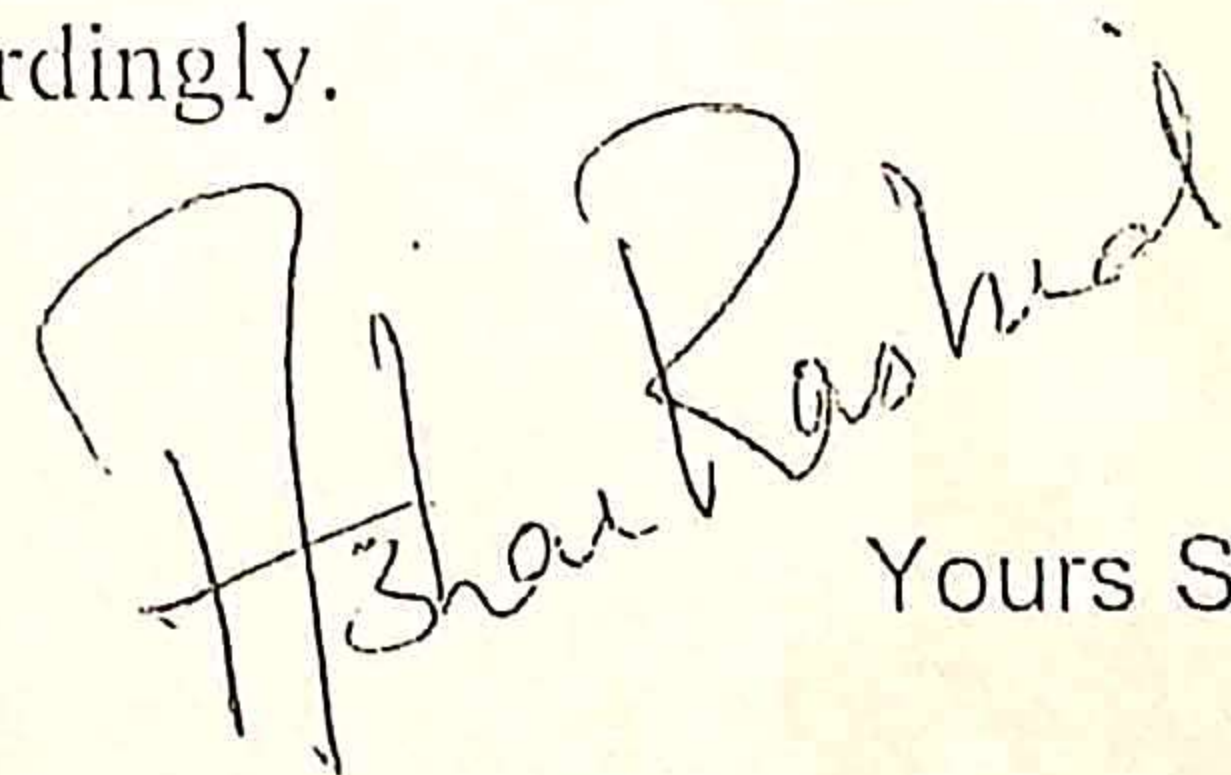 rdingly.
Azhar Rashid
Yours S